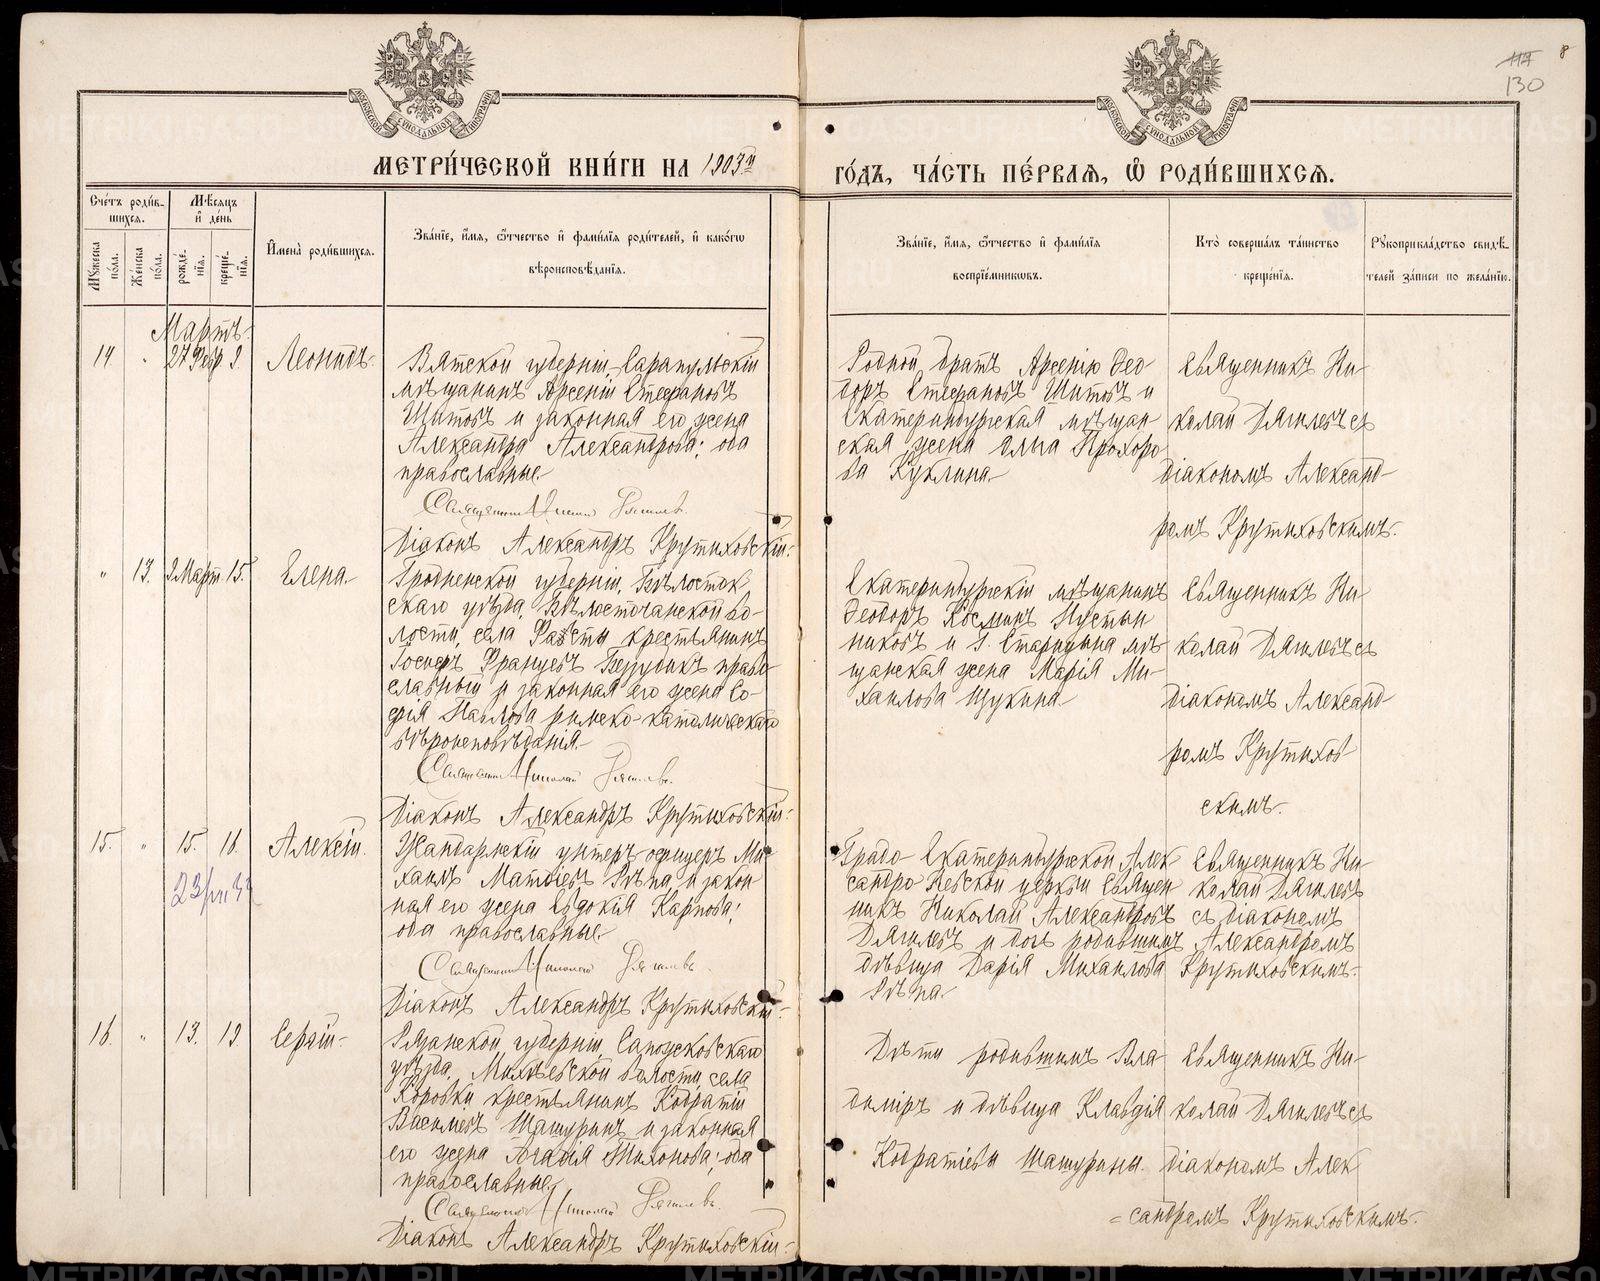 130
8
МЕТРИ́ЧЕСКОЙ КНИ́ГИ НА 1903й
ГО́ДЪ, ЧА́СТЬ ПЕ́РВАЯ, Ѡ РОДИ́ВШИХСѦ.
Сче́тъ роди́в-
шихся.
Мѣ́сяцъ
и де́нь
Му́жеска
по́ла.
Же́нска
по́ла.
рожде́-
нїя.
креще́-
нїя.
Имена̀ роди́вшихся.
Зва́нїе, и́мя, ѻ҆́тчество и фами́лїя роди́телей, и како́гѡ
вѣроисповѣ́данїя.
Зва́нїе, и́мя, ѻ҆́тчество и фами́лїя
воспрїе́мникѡвъ.
Кто̀ соверша́лъ та́инство
креще́нїя.
Рꙋкоприкла́дство свидѣ́-
телей за́писи по жела́нїю.
Мартъ.
14 " 27 Февр 2. Леонидъ.
Вятской губерніи, Сарапульскій
мѣщанинъ Арсеній Стефановъ
Шитовъ и законная его жена
Александра Александрова; оба
православные.
Священникъ Николай Дягилевъ.
Діаконъ Александръ Крутиховскій.
Родной братъ Арсенію Ѳео-
доръ Стефановъ Шитовъ и
Екатеринбургская мѣщан-
ская жена Ольга Прохоро-
ва Куклина.
Священникъ Ни-
колай Дягилевъ съ
діакономъ Александ-
ромъ Крутиховскимъ.
" 13. 9 Март. 15. Елена.
Гродненской губерніи, Бѣлосток-
скаго уѣзда, Бѣлосточанской во-
лости, села Фасты крестьянинъ
Францевъ православный и законная его жена Со-
фія Павлова римско-католическаго
вѣроисповѣданія.
Священникъ Николай Дягилевъ.
Діаконъ Александръ Крутиховскій.
Екатеринбургскій мѣщанинъ
Ѳеодоръ Космин Пустын-
никовъ и мѣ-
щанская жена Марія Ми-
хаилова Щукина.
Священникъ Ни-
колай Дягилевъ съ
діакономъ Александ-
ромъ Крутихов-
скимъ.
15. " 15. 16. Алексій.
Жандармскій унтеръ-офицеръ Ми-
хаилъ Матвіевъ Рѣпа, и закон-
ная его жена Евдокія Карпова;
оба православные.
Священникъ Николай Дягилевъ.
Діаконъ Александръ Крутиховскій.
Градо-Екатеринбургской Алек-
сандро-Невской церкви Священ-
никъ Николай Александровъ
Дягилевъ и дочь родившимъ
дѣвица Дарія Михаилова
Рѣпа.
Священникъ Ни-
колай Дягилевъ
съ діакономъ
Александромъ
Крутиховскимъ.
16. " 13. 19. Сергій.
Рязанской губерніи, Сапожковскаго
уѣзда, Можаевской волости, села
Коровки крестьянинъ Кодратій
Васильевъ Шашуринъ и законная
его жена Агафія Тихонова; оба
православные.
Священникъ Николай Дягилевъ.
Діаконъ Александръ Крутиховскій.
Дѣти родившимъ Вла-
диміръ и дѣвица Клавдія
Кодратіевы Шашурины.
Священникъ Ни-
колай Дягилевъ съ
діакономъ Алек-
сандромъ Крутиховскимъ.